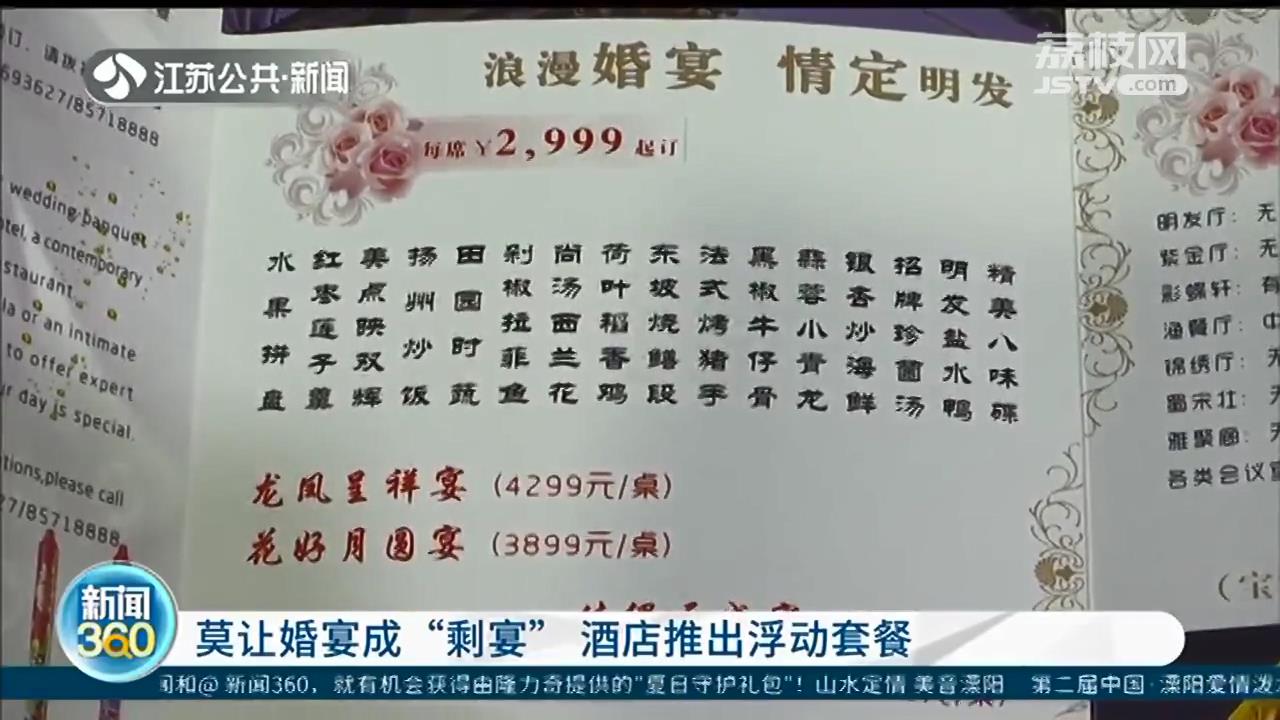 订，请拨
693627/85718888
江苏公共·新闻
荔枝网
JSTV.com
浪漫婚宴 情定明发
每席¥2,999起订
wedding banquet
tel, a contemporary
staurant
la or an intimate
to offer expert
ur day is special.
tions,please call
27/85718888
精美八味碟
明发盐水鸭
招牌珍菌汤
银杏炒海鲜
蒜蓉小青龙
黑椒牛仔骨
法式烤猪手
东坡烧鳝段
荷叶稻香鸡
尚汤西兰花
剁椒拉菲鱼
田园时蔬
扬州炒饭
美点映双辉
红枣莲子羹
水果拼盘
龙凤呈祥宴 (4299元/桌)
花好月圆宴 (3899元/桌)
明发厅：无
紫金厅：无
彩蝶轩：有
渔餐厅：中
锦绣厅：无
蜀宗壮：无
雅聚阁：无
各类会议室
（宝
新闻
360
莫让婚宴成“剩宴” 酒店推出浮动套餐
司和@新闻360，就有机会获得由隆力奇提供的"夏日守护礼包"！山水定情 美音溧阳 第二届中国·溧阳爱情泼水